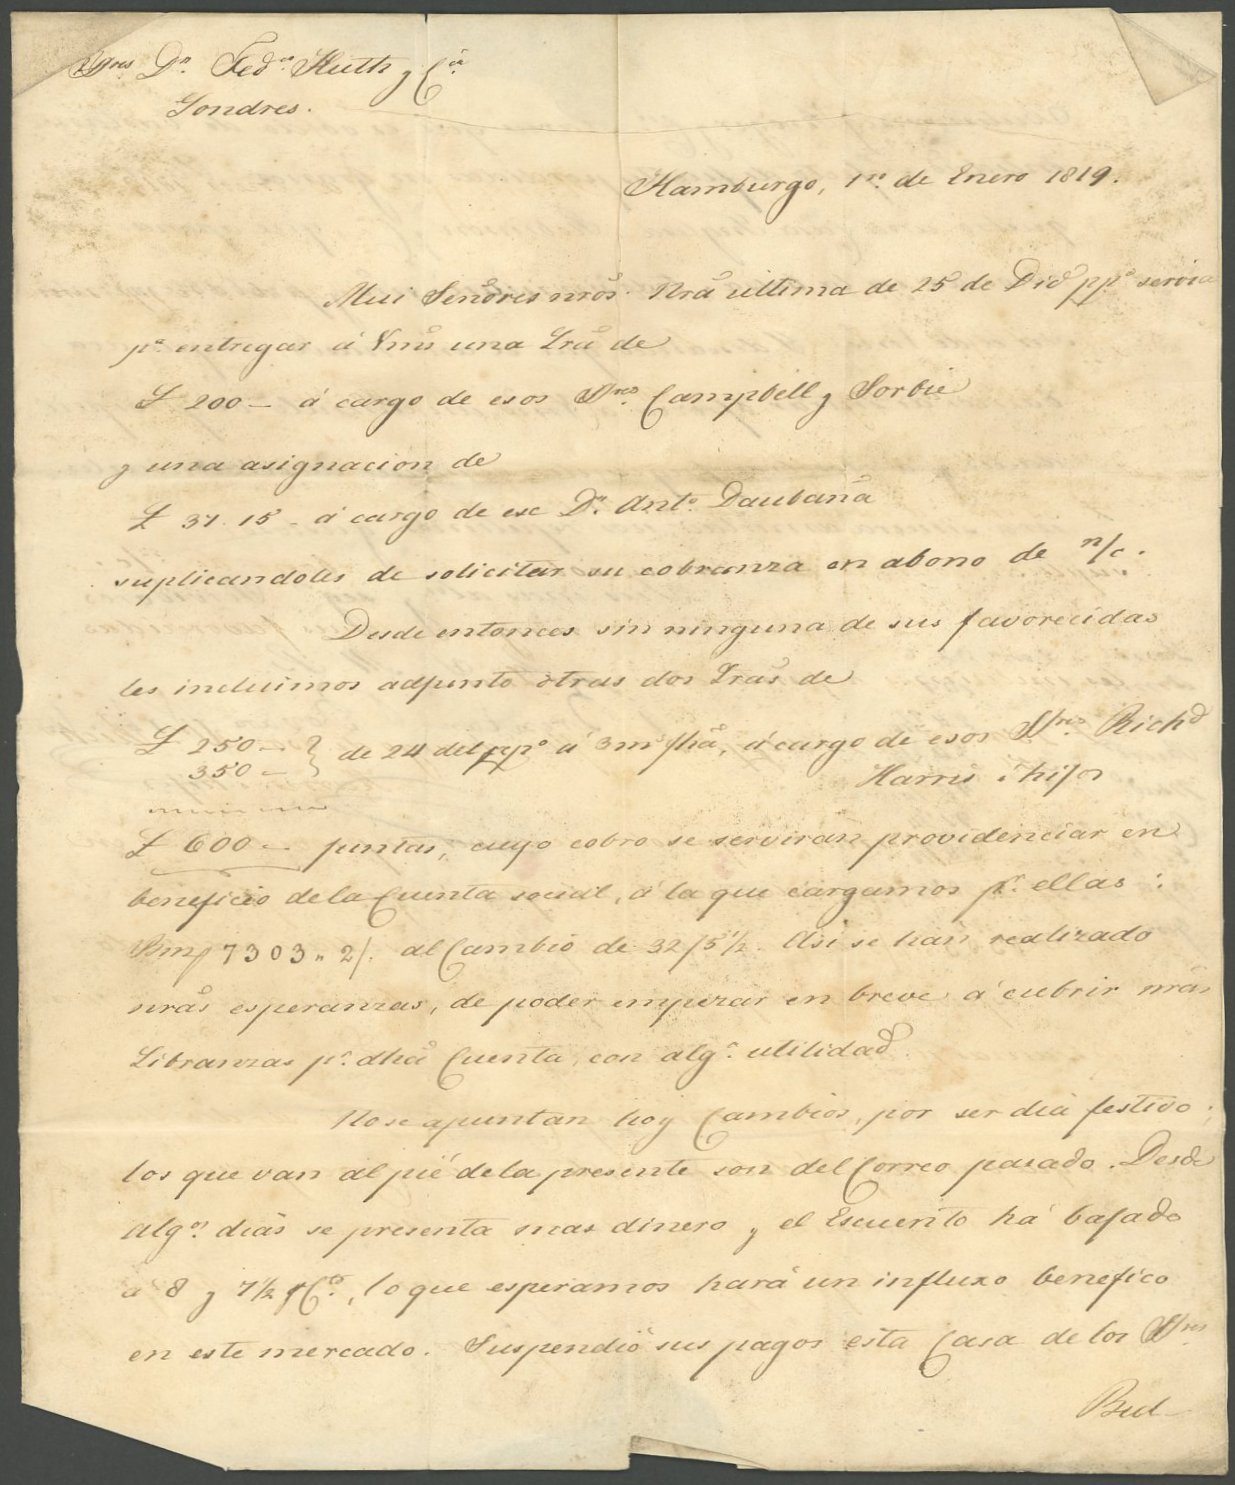 Sres Dn. Fedco. Huth y Ca.
Londres.
Hamburgo, 1ro. de Enero 1819.
Mui Señores nros. Nrã ultima de 25 de Dice ppo servia
pa. entregar á Vms una Lra de
£ 200 — á cargo de esos Sres. Campbell y Sorbie
y una asignacion de
£ 37. 15 - á cargo de ese Dn. Anto. Daubaña
suplicandoles de solicitar su cobranza en abono de n/c.
Desde entonces sin ninguna de sus favorecidas
les incluimos adjunto otras dos Lras de
£ 250 — } de 24 del ppo á 3 ms/fhã, á cargo de esos Sres. Richd
350 —
Harris é hijos
£ 600 — juntas, cuyo cobro se serviran providenciar en
beneficio de la Cuenta social, á la que cargamos pr. ellas:
Bm/ 7303 " 2/. al Cambio de 32/5 1/2. Asi se han realizado
nrãs esperanzas, de poder empezar en breve á cubrir nrãs
Libranzas pr. dhã Cuenta, con alga. utilidad.
No se apuntan hoy Cambios, por ser dia festivo;
los que van al pié de la presente son del Correo pasado. Desde
algs. dias se presenta mas dinero y el Escuento há bajado
a 8 y 7 1/2 pCo., lo que esperamos hará un influxo benefico
en este mercado. Suspendió sus pagos esta Casa de los Sres
Bul-